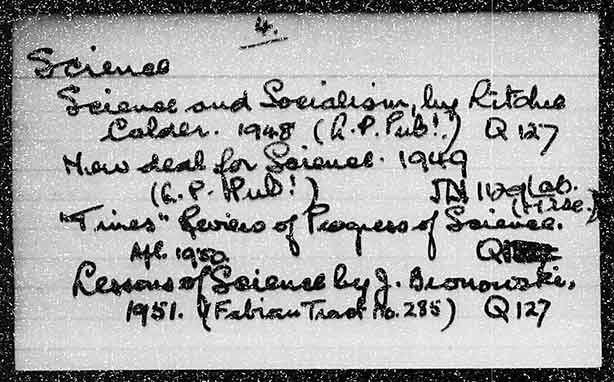 4.
Science
Science and Socialism, by Ritchie
Calder. 1948 (L.P. Pub!.) Q 127
New deal for Science. 1949
(L.P. Pub!) JN 1129 Lab.
(Misc.)
"Times" Review of Progress of Science.
1950. Q
Lessons of Science by J. Bronowski,
1951. (Fabian Tract No. 285) Q 127